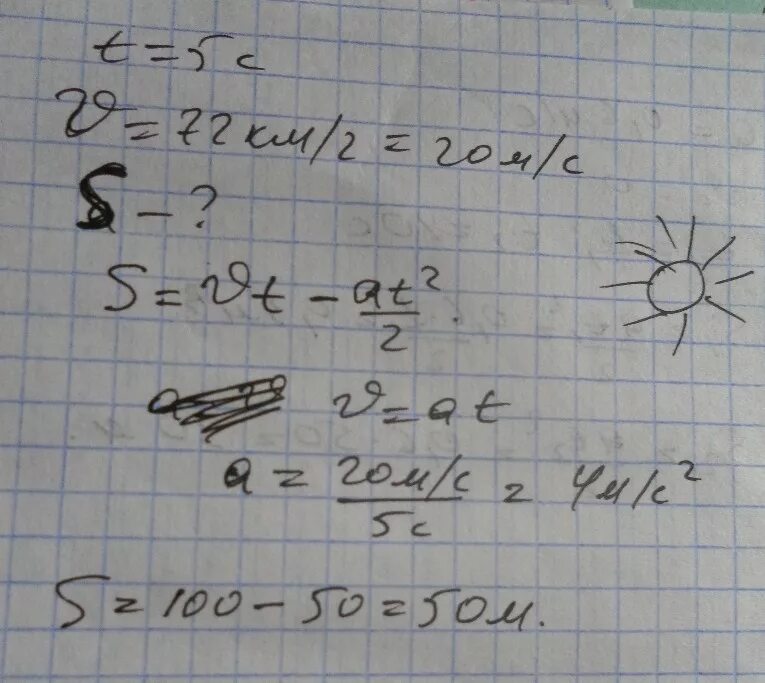 t = 5 с
υ = 72 км/г = 20 м/с
S – ?
S = υt – at²/2.
υ = at
a = 20 м/с / 5с = 4 м/с²
S = 100 – 50 = 50 м.